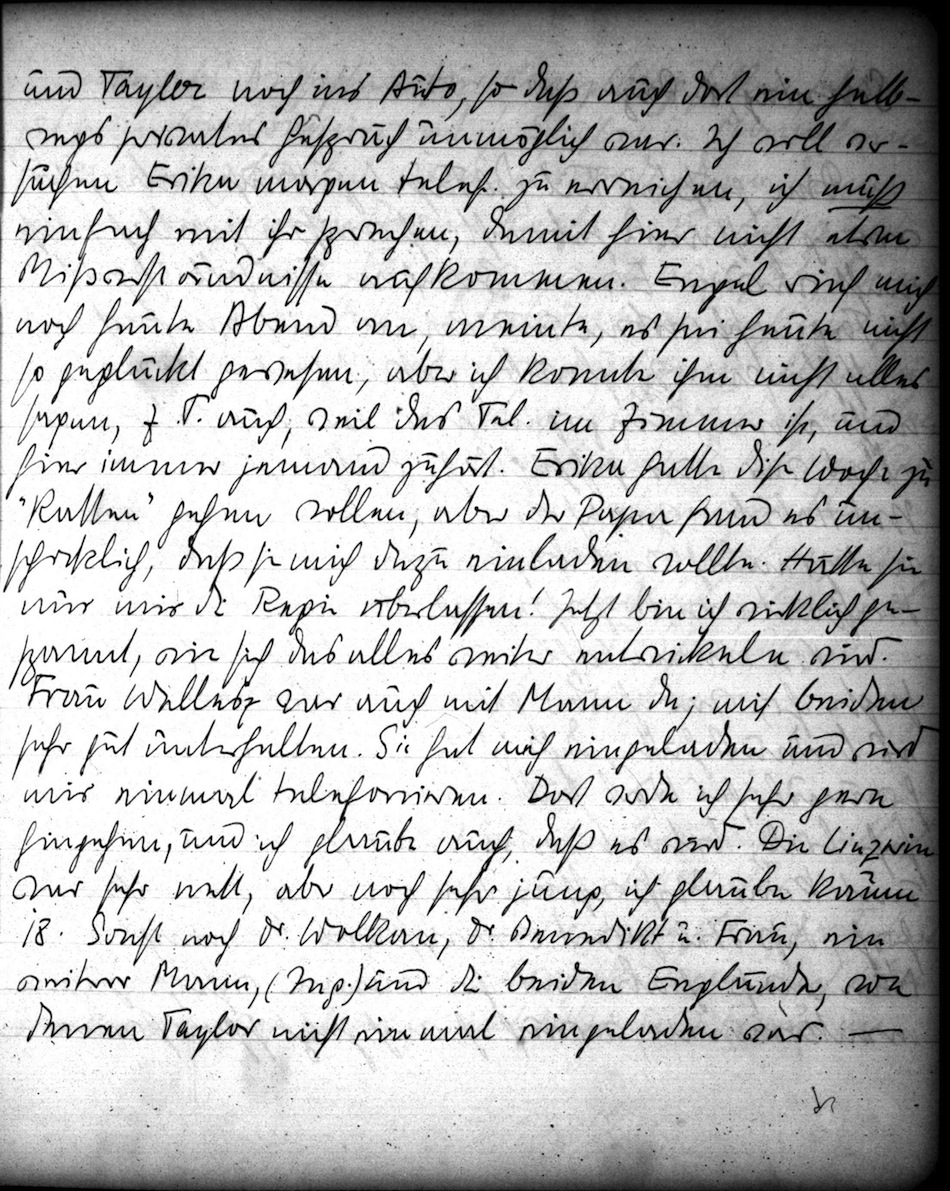 und Tayler noch ins Auto, so daß auch dort ein halb-
wegs privates Gespräch unmöglich war. Ich will ver-
suchen Erika morgen telef. zu erreichen, ich muß
einfach mit ihr sprechen, damit hier nicht etwa
Mißverständnisse aufkommen. Engel rief mich
noch heute Abend an, meinte, es sei heute nicht
so geglückt gewesen, aber ich konnte ihm nicht alles
sagen, z. T. auch, weil das Tel. im Zimmer ist, und
hier immer jemand zuhört. Erika hatte diese Woche zu
"Ratten" gehen wollen, aber der Papa fand es un-
schicklich, daß sie mich dazu einladen wollte. Hätte sie
nur mir die Regie überlassen! Jetzt bin ich wirklich ge-
spannt, wie sich das alles weiter entwickeln wird.
Frau Wellesz war auch mit Mann da; mich beiden
sehr gut unterhalten. Sie hat mich eingeladen und wird
mir einmal telefonieren. Dort werde ich sehr gern
hingehen, und ich glaube auch, daß es wird. Die Linzerin
war sehr nett, aber noch sehr jung, ich glaube kaum
18. Sonst noch Dr. Wolkan, Dr. Benedikt u. Frau, ein
weiterer Mann, (Ing.) und die beiden Engländer, von
denen Taylor nicht einmal eingeladen war. —